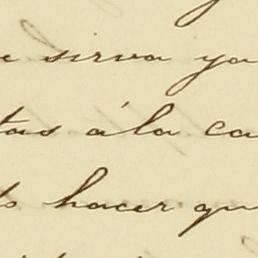 e sirva ya
tas á la ca
to hacer qu